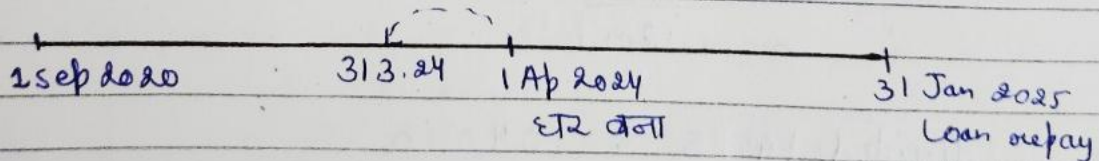 1 Sep 2020 31 3.24 1 Ap 2024 31 Jan 2025
घर बना Loan repay